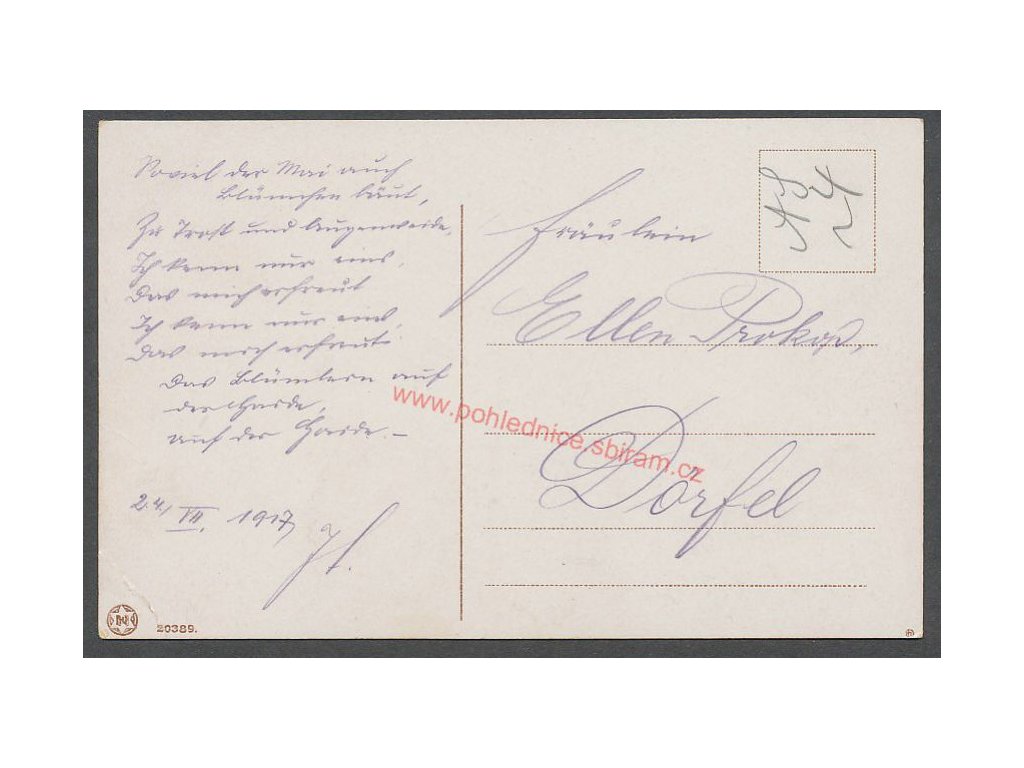 Soviel der Mai auch
Blümchen beut,
Zu Trost und Augenweide,
Ich kenn nur eins,
Das mich erfreut
Ich kenn nur eins,
Das mich erfreut
Das Blümlein auf
der Haide,
auf der Haide.—
24. VII. 1917
Fräulein
Ellen Prokop,
Dörfel
24
20389.
www.pohlednice.sbiram.cz